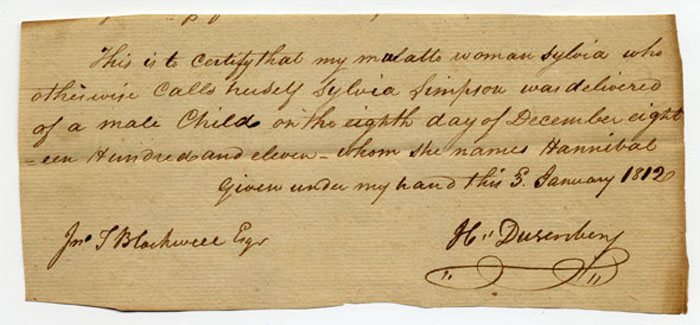 This is to certify that my mulatto woman Sylvia who
otherwise calls herself Sylvia Simpson was delivered
of a male Child on the eighth day of December eight
=een Hundred and eleven – whom she names Hannibal
Given under my hand this 3. January 1812
Jno. I Blackwell Esqr
H" Dusenbery